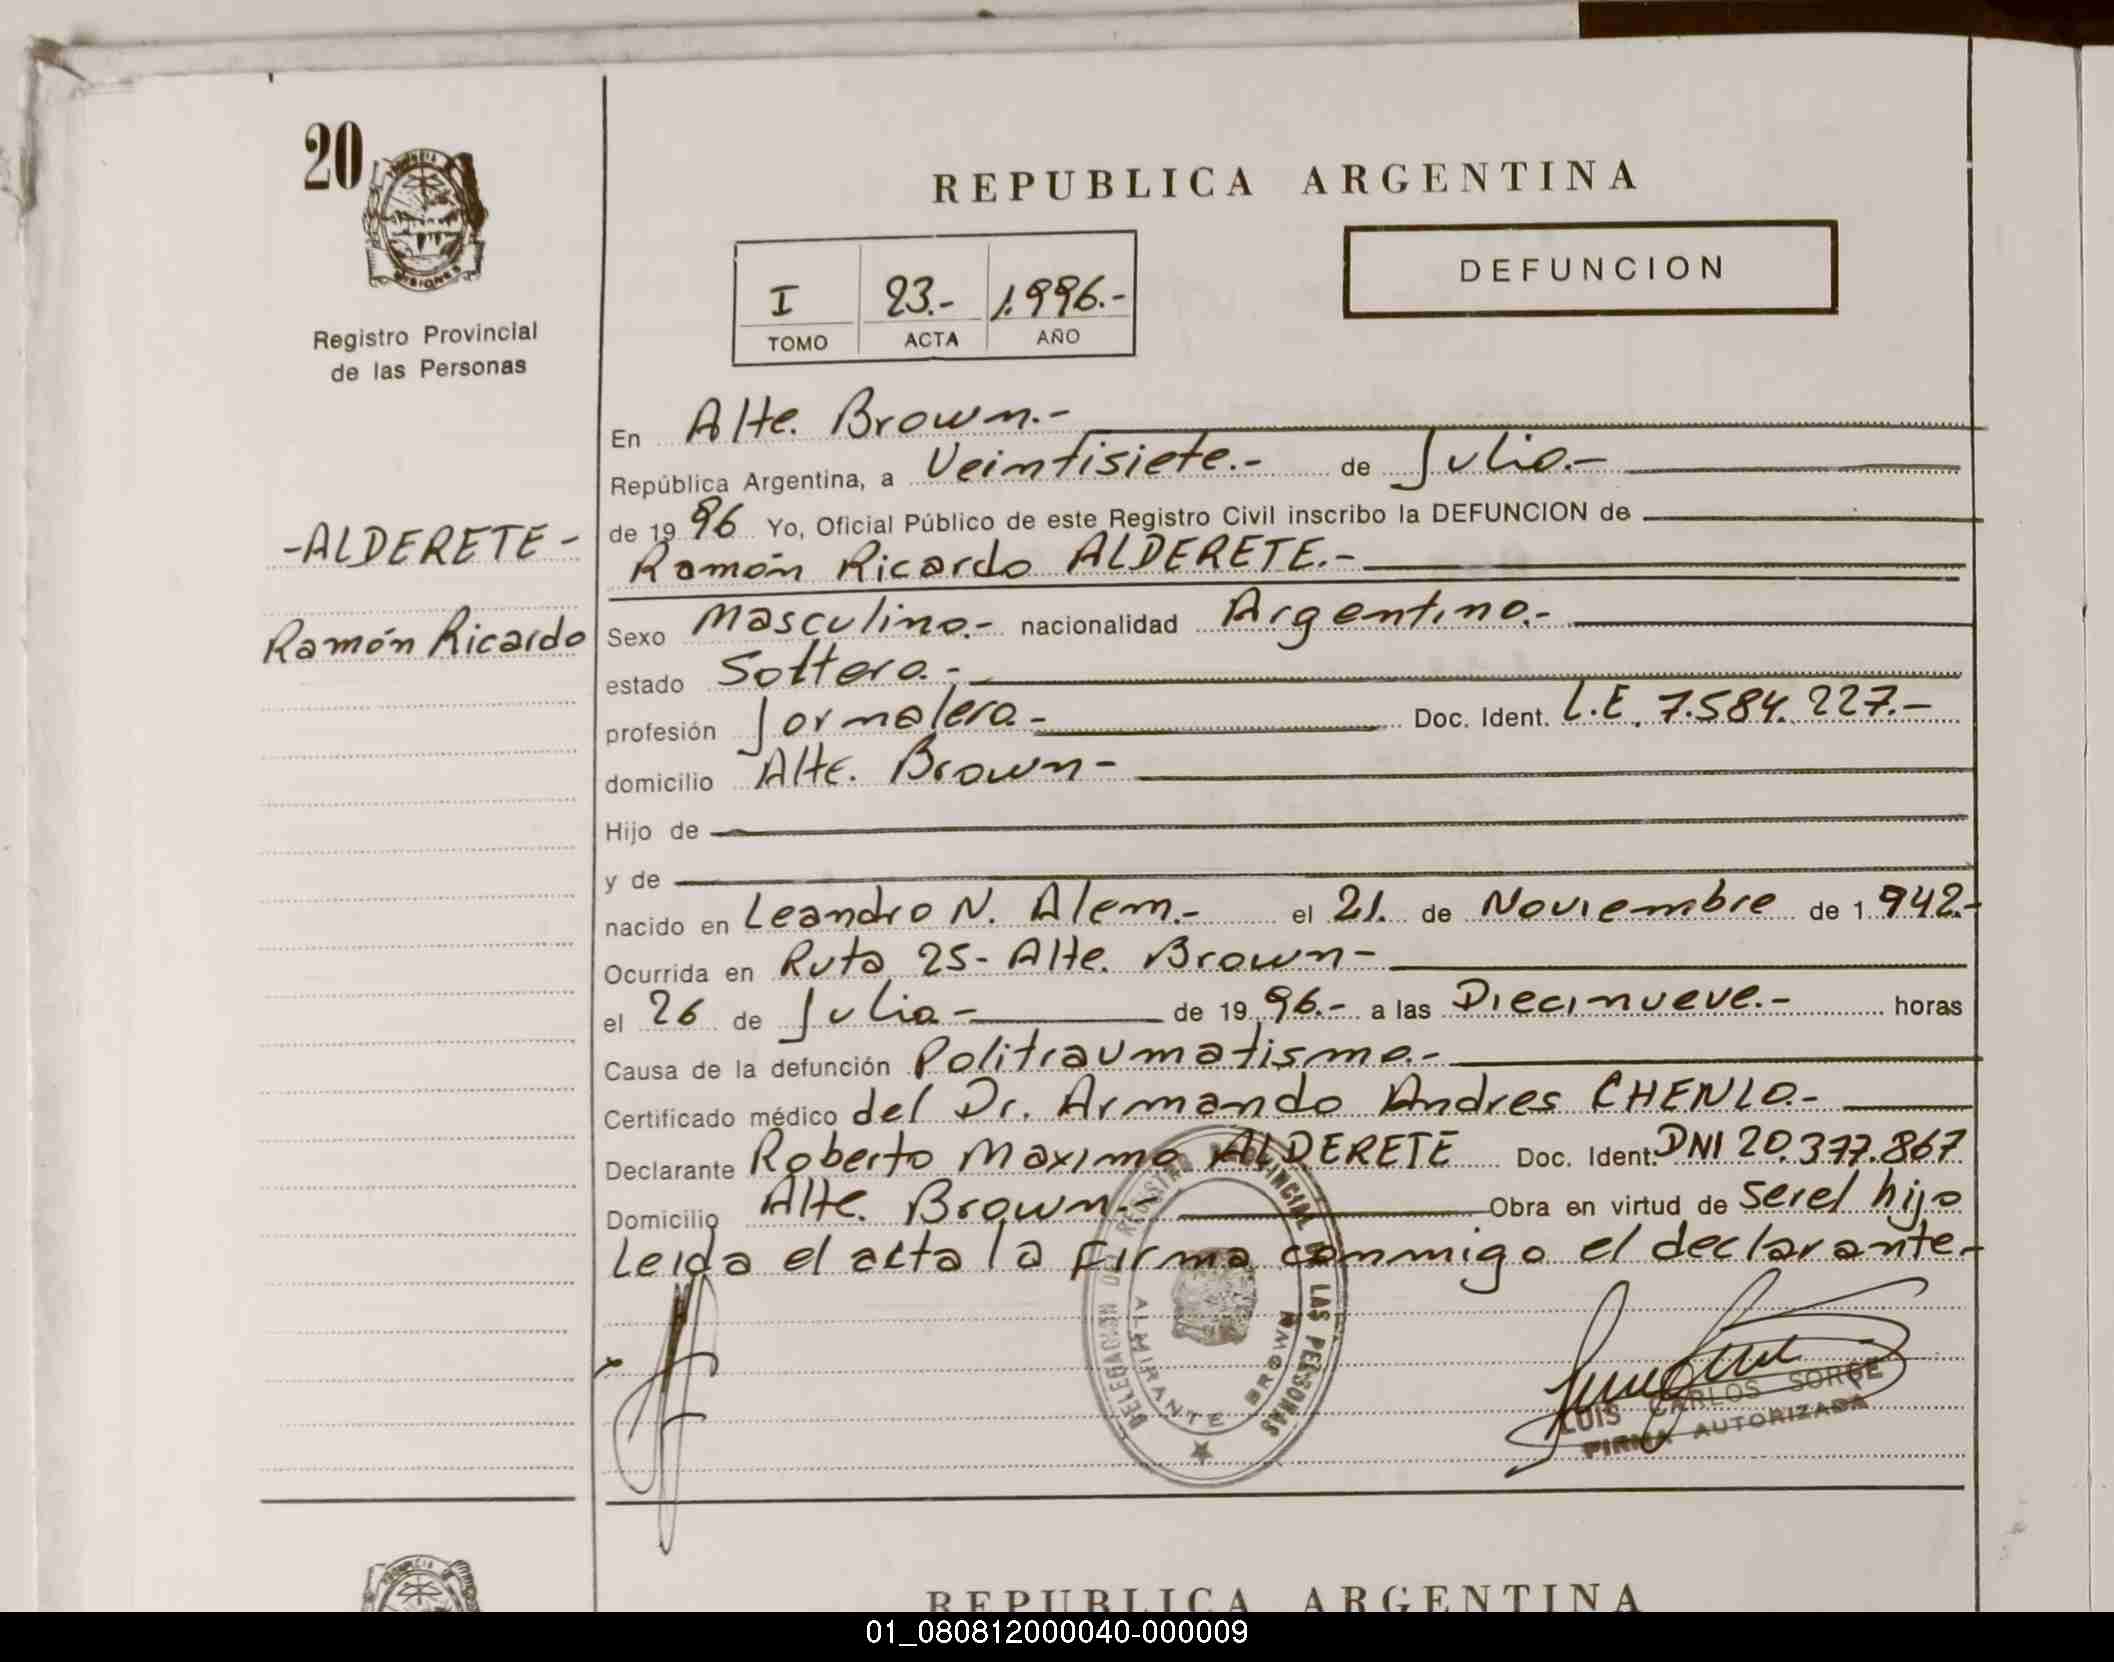 20
PROVINCIA DE
MISIONES
Registro Provincial
de las Personas
REPUBLICA ARGENTINA
DEFUNCION
I 23.- 1.996.-
TOMO ACTA AÑO
-ALDERETE-
Ramón Ricardo
En Alte. Brown.-
República Argentina, a Veintisiete.- de Julio.-
de 19 96 Yo, Oficial Público de este Registro Civil inscribo la DEFUNCION de
Ramón Ricardo ALDERETE.-
Sexo Masculino.- nacionalidad Argentino.-
estado Soltero.-
profesión Jornalero.- Doc. Ident. L.E. 7.584.227.-
domicilio Alte. Brown-
Hijo de
y de
nacido en Leandro N. Alem.- el 21. de Noviembre de 1 942.-
Ocurrida en Ruta 25- Alte. Brown-
el 26 de Julio- de 19 96.- a las Diecinueve.- horas
Causa de la defunción Politraumatismo.-
Certificado médico del Dr. Armando Andres CHENLO.-
Declarante Roberto Maximo ALDERETE Doc. Ident. DNI 20.377.867
Domicilio Alte. Brown.- Obra en virtud de ser el hijo
Leida el acta la firma conmigo el declarante.-
DELEGACION DEL REGISTRO PROVINCIAL DE LAS PERSONAS
ALMIRANTE BROWN
LUIS CARLOS SORGE
FIRMA AUTORIZADA
REPUBLICA ARGENTINA
01_080812000040-000009